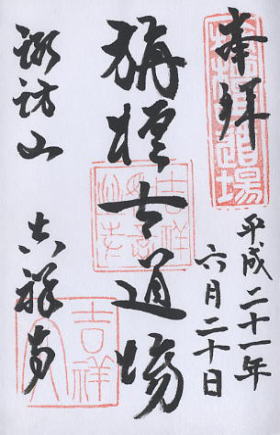 奉拝
平成二十一年
六月二十日
栴檀古道場
諏訪山
吉祥寺
吉祥